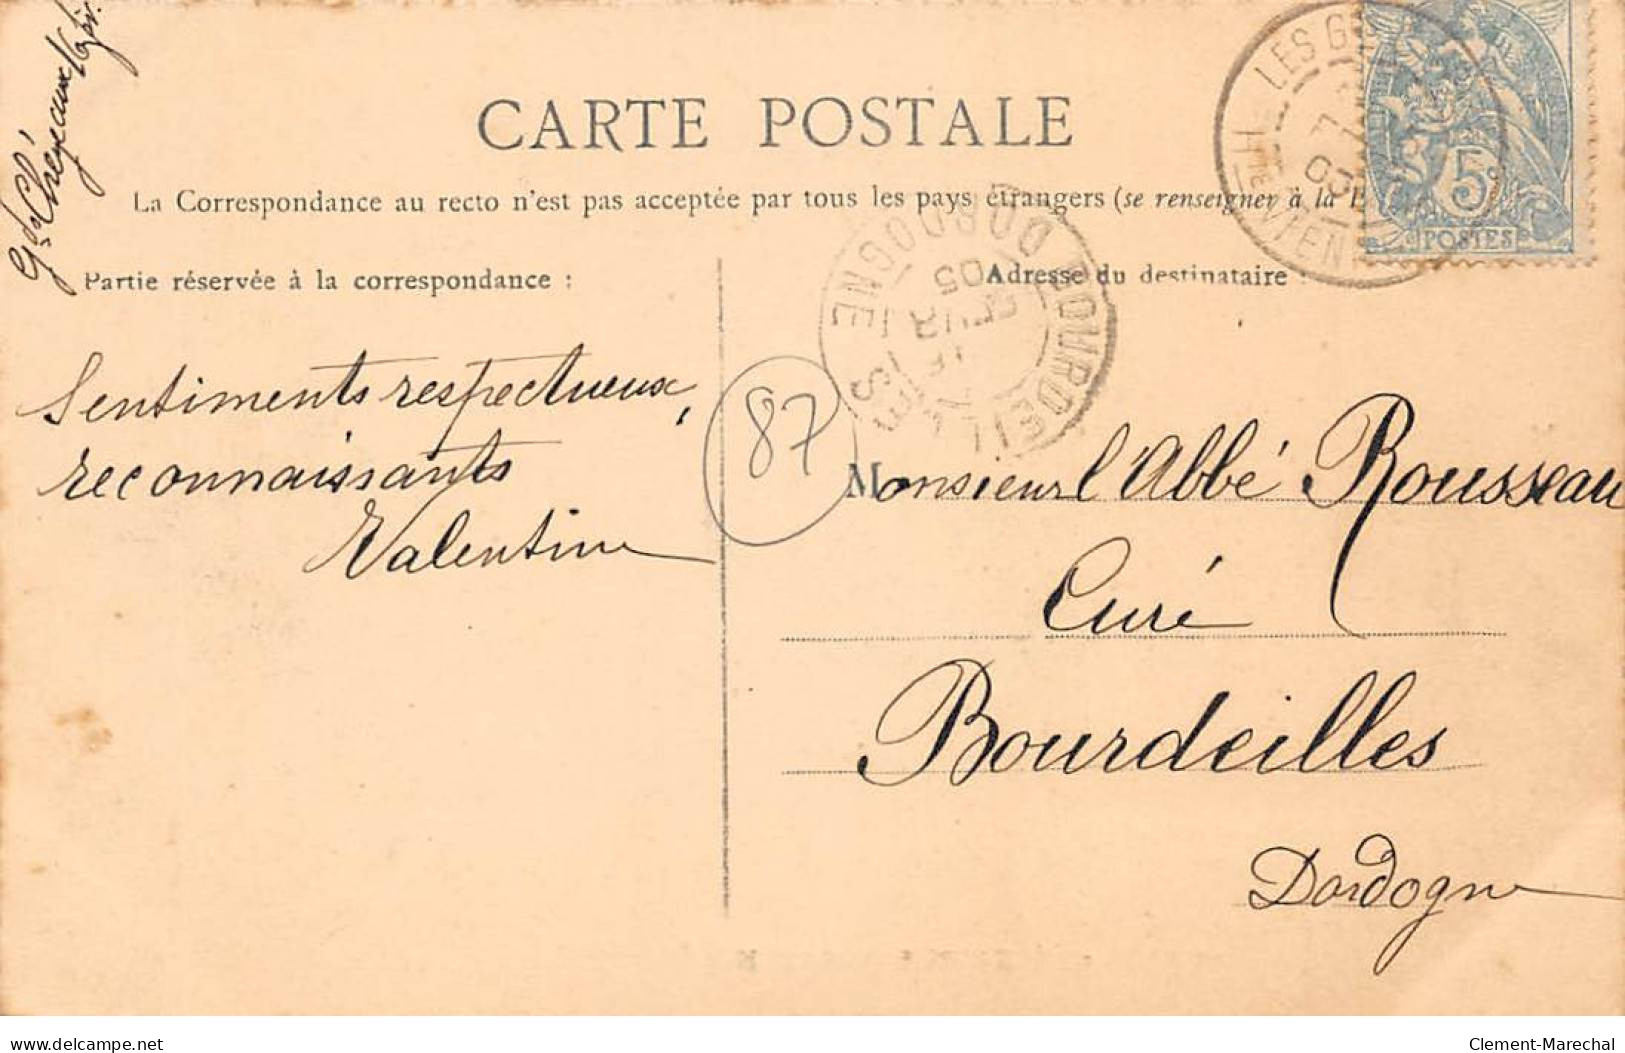 CARTE POSTALE
La Correspondance au recto n'est pas acceptée par tous les pays étrangers (se renseigner à la
Partie réservée à la correspondance :
Adresse du destinataire :
Sentiments respectueux,
reconnaissants
Valentine
87
Monsieur l'Abbé Rousseau
Curé
Bourdeilles
Dordogne
LES
Hte VIEN
5c
POSTES
BOURDEILLES
DORDOGNE
05
delcampe.net
Clement-Marechal